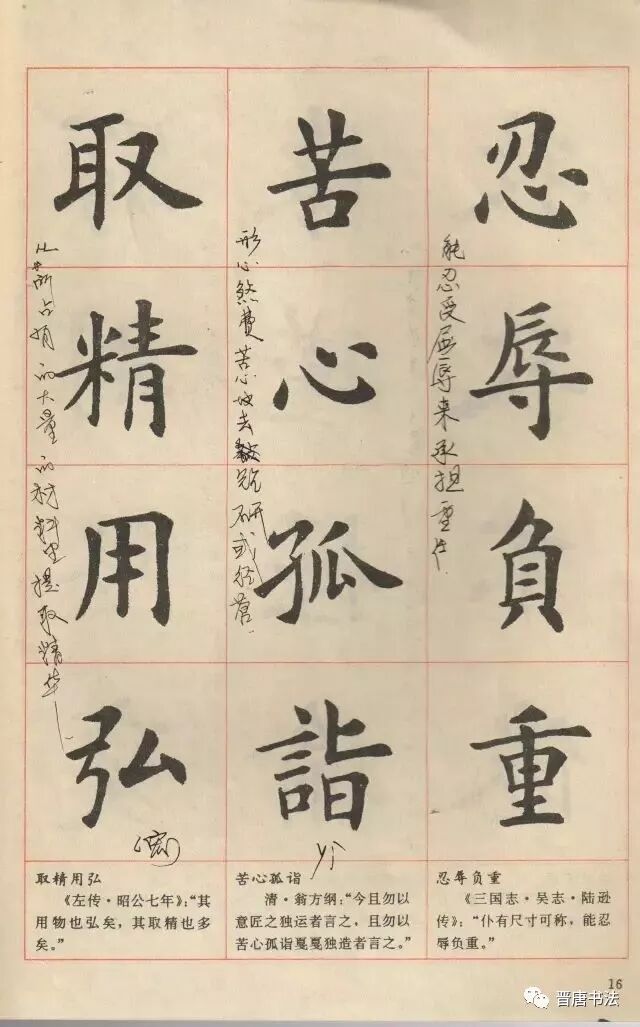 忍辱負重
能忍受屈辱来承担重任
苦心孤詣
苦心地去
研或经营
取精用弘
从所占有的大量的材料里提取精华
(宏)
忍辱负重
《三国志·吴志·陆逊
传》：“仆有尺寸可称，能忍
辱负重。”
苦心孤诣
清·翁方纲：“今且勿以
意匠之独运者言之，且勿以
苦心孤诣戛戛独造者言之。”
取精用弘
《左传·昭公七年》：“其
用物也弘矣，其取精也多
矣。”
16
晋唐书法